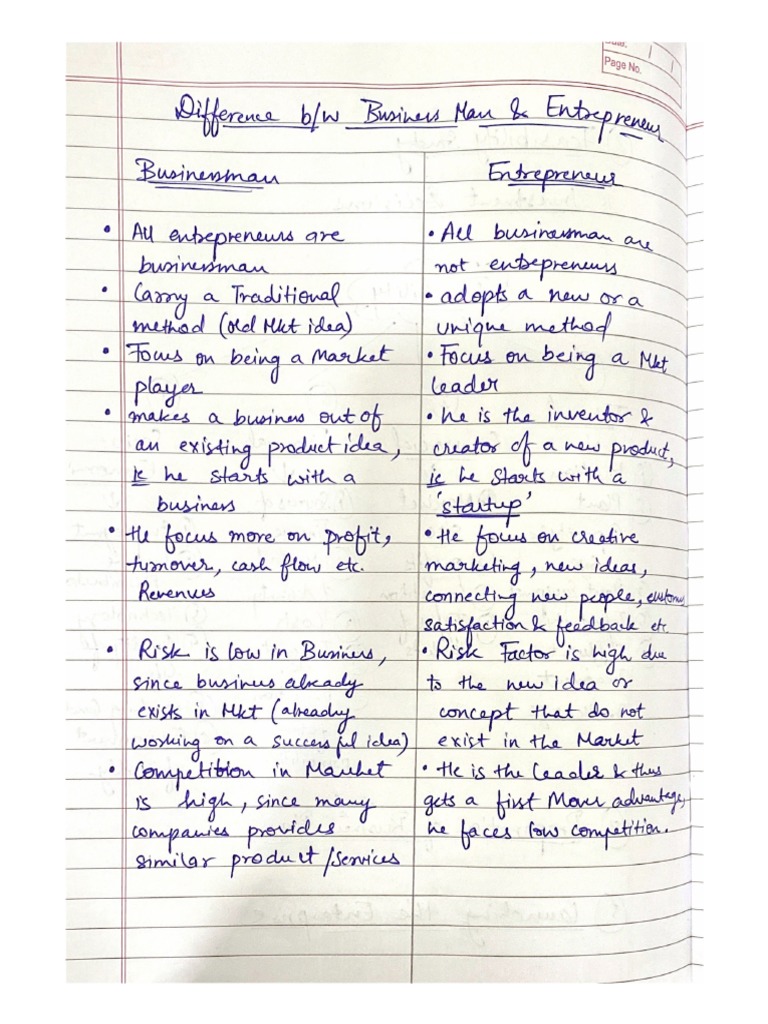 Date.
Page No.
Difference b/w Business Man & Entrepreneur
Businessman
• All entrepreneurs are
businessman
• Carry a Traditional
method (old Mkt idea)
• Focus on being a Market
player
• makes a business out of
an existing product idea,
ie he starts with a
business
• He focus more on profit,
turnover, cash flow etc.
Revenues
• Risk is low in Business,
since business already
exists in Mkt (already
working on a successful idea)
• Competition in Market
is high, since many
companies provides
similar product/services
Entrepreneur
• All businessman are
not entrepreneurs
• adopts a new or a
unique method
• Focus on being a Mkt
leader
• he is the inventor &
creator of a new product,
ie he starts with a
'startup'
• He focus on creative
marketing, new ideas,
connecting new people, customer
satisfaction & feedback etc.
• Risk Factor is high due
to the new idea or
concept that do not
exist in the Market
• He is the leader & thus
gets a first Mover advantage,
he faces low competition.